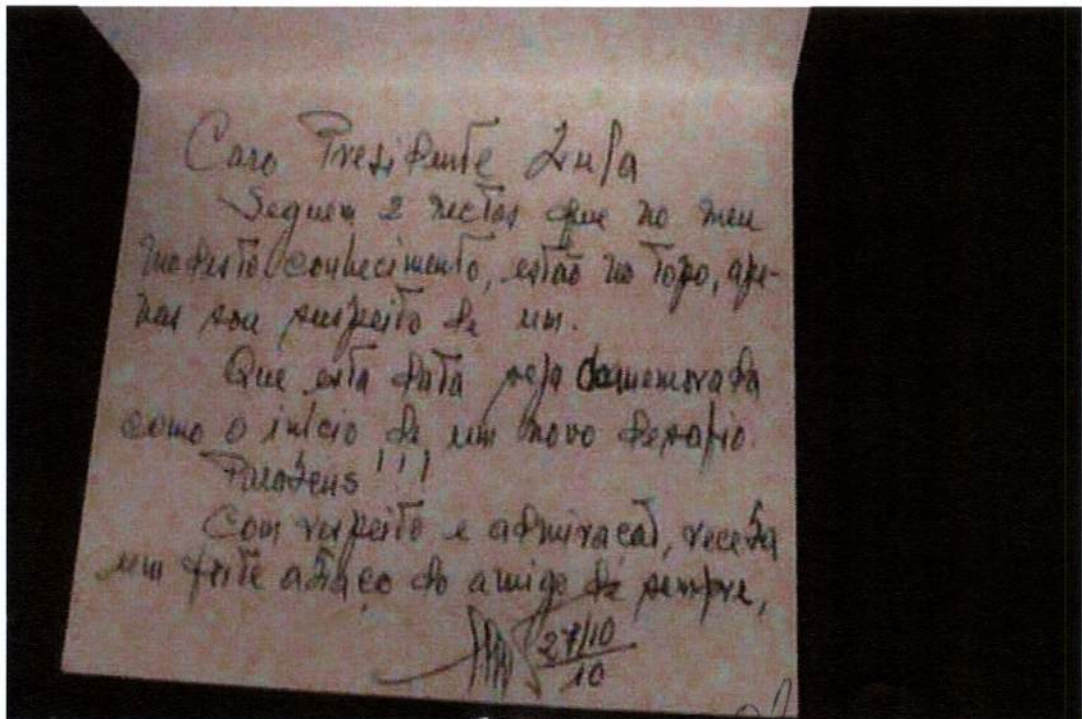 Caro Presidente Lula
Seguem 2 nectas que no meu
modesto conhecimento, estão no topo, ape-
nas sou suspeito de um.
Que esta data seja comemorada
como o início de um novo desafio.
Parabens !!!
Com respeito e admiracaõ, receba
um forte abraço do amigo de sempre,
27/10
10